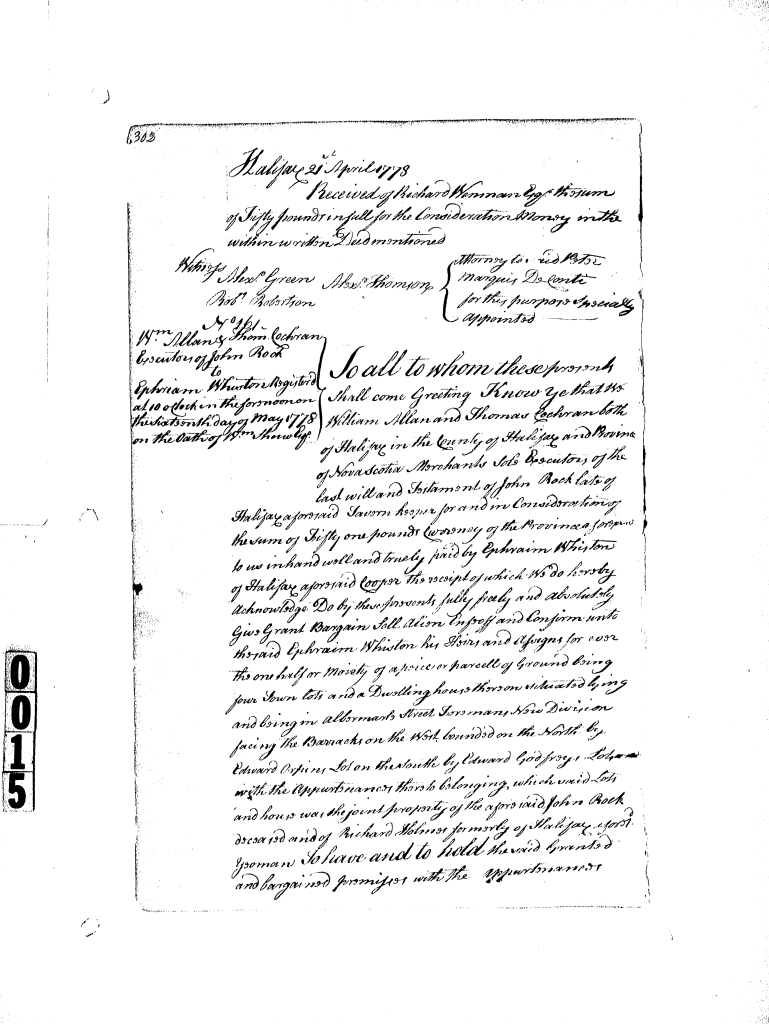 302
Halifax 21st April 1778
Received of Richard Wenman Esqr. the sum
of Fifty pounds in full for the Consideration Money in the
within written Deed mentioned
Witness
Alexr. Green
Robt. Robertson
Alexr. Thomson
Attorney to Peter
Marquis De Conti
for this purpose Specially
Appointed
No. 161
Wm Allan & Thom. Cochran
Executors of John Rock
to
Ephriam Whiston Registerd
at 10 o Clock in the forenoon on
the Sixteenth day of May 1778
on the Oath of Wm Shaw Esqr.
To all to whom these presents
Shall come Greeting Know Ye that We
William Allan and Thomas Cochran both
of Halifax in the County of Halifax and Province
of Nova Scotia Merchants Sole Executors of the
last will and Testament of John Rock late of
Halifax aforesaid Tavern keeper for and in Consideration of
the sum of Fifty one pounds Currency of the Province aforesaid
to us in hand well and truely paid by Ephraim Whiston
of Halifax aforesaid Cooper the receipt of which We do hereby
Acknowledge Do by these presents fully freely and absolutely
Give Grant Bargain Sell Alien Enfeoff and Confirm unto
the said Ephraim Whiston his Heirs and Assigns for ever
the one half or Moiety of a peice or parcell of Ground being
four Town lots and a Dwelling house thereon situated lying
and being in Albermarle Street Foremans New Division
facing the Barracks on the West bounded on the North by
Edward Orpins Lot on the South by Edward Godfreys Lot
with the Appurtenances thereto belonging, which said Lots
and house was the joint property of the aforesaid John Rock
deceased and of Richard Holmes formerly of Halifax aforesd.
Yeoman To have and to hold the said Granted
and bargained premises with the appurtenances
0015